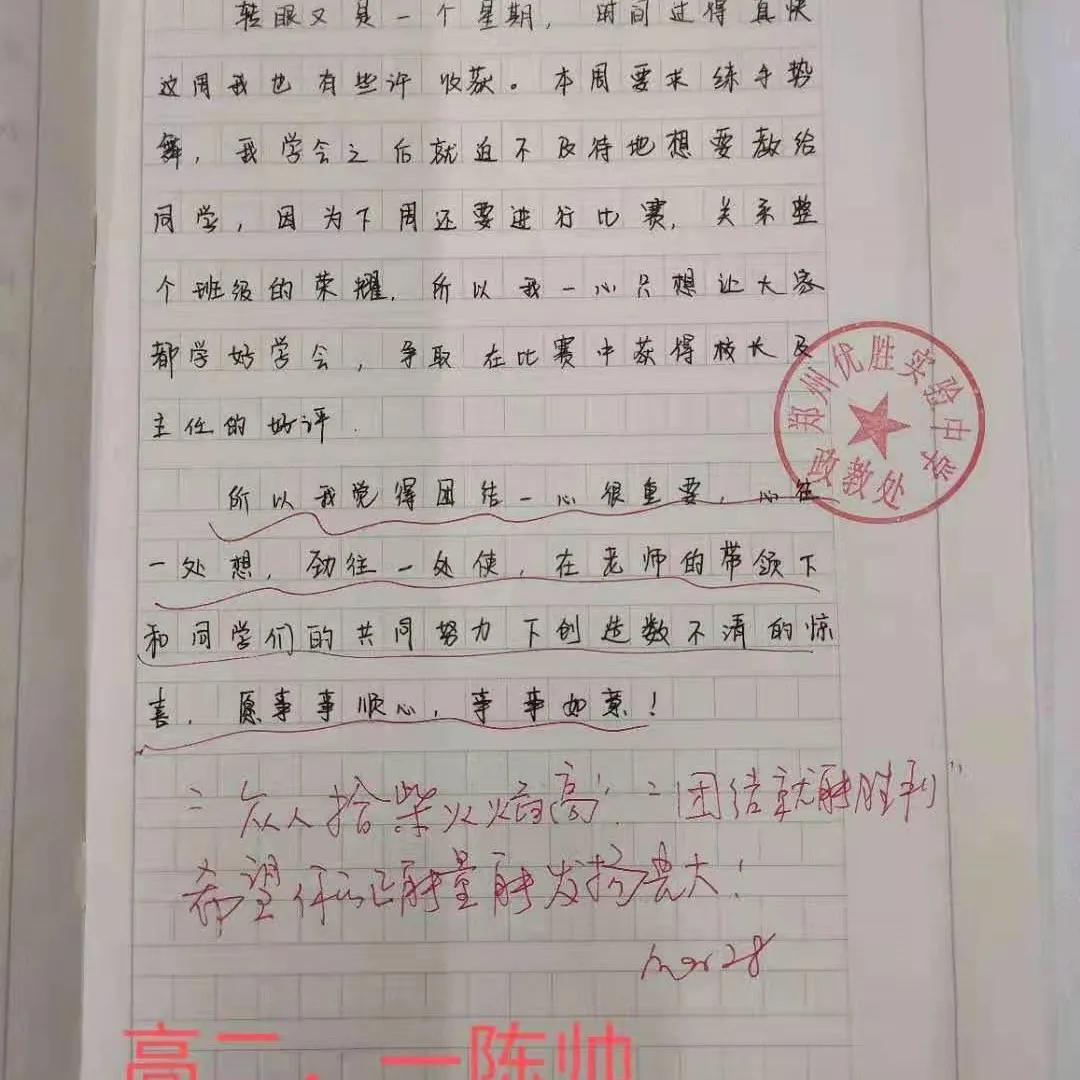 转眼又是一个星期，时间过得真快
这周我也有些许收获。本周要求练手势
舞，我学会之后就迫不及待地想要教给
同学，因为下周还要进行比赛，关系整
个班级的荣耀，所以我一心只想让大家
都学好学会，争取在比赛中获得校长及
主任的好评.
郑州优胜实验中学
政教处
所以我觉得团结一心很重要，心往
一处想，劲往一处使，在老师的带领下
和同学们的共同努力下创造数不清的惊
喜，愿事事顺心，事事如意！
"众人拾柴火焰高" "团结就能胜利"
希望你的正能量能发扬光大！
Mar 28
高二·一陈帅